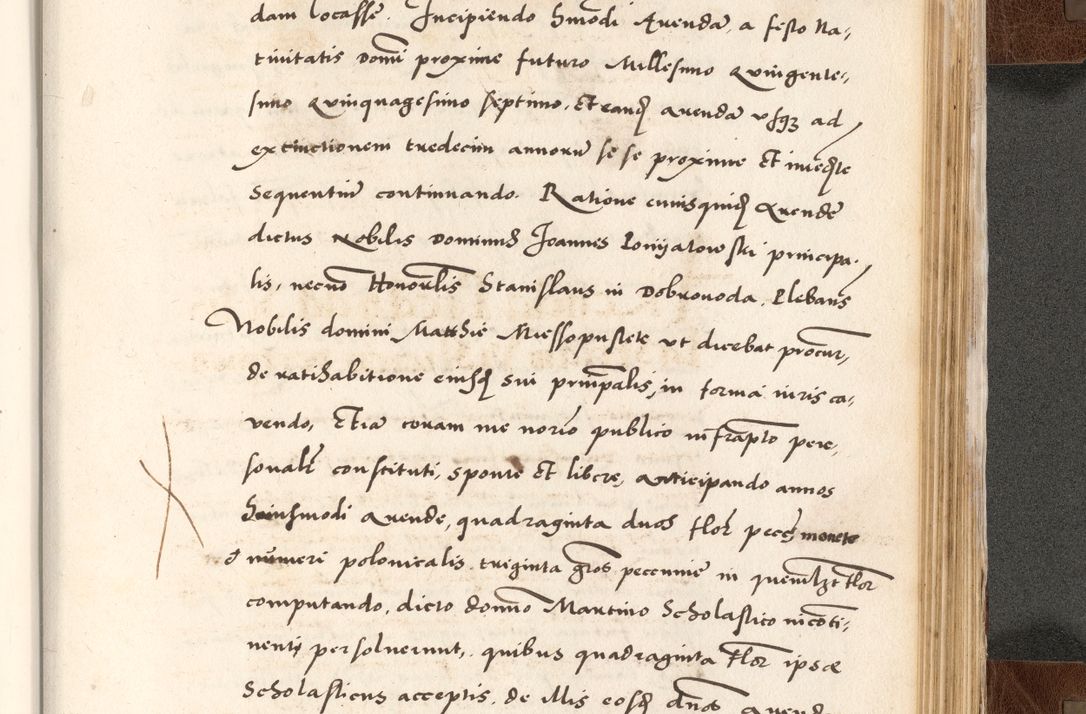 dam locasse. Incipiendo hmōdi Arendā, a festo Na-,
tiuitatis Domī proxime futuro Millesimo Quingente-,
simo Quinquagesimo septimo. Et eandē arendā vsq3 ad
extinctionem tredecim annorū se se proxime Et imedte
sequentiū continuando. Ratione cuiusquidē Arendē
dictus Nobilis Dominus Joannes Poniatowski principa-
lis, necnō Honorlis Stanislaus in Dobrowoda, Plebanus
Nobilis domini Matthie Miessopustek vt dicebat procur,
de ratihabitione eiusdē sui principalis, in forma iuris ca-,
uendo, Etiā coram me norio publico infrapto pers-,
sonalr constituti, sponte Et libere, anticipando annos
huiusmodi Arende, quadraginta duos flor pecē monete
& numeri polonicalis, triginta gros pecunie in quemlzt flor
computando, dicto domno Martino Scholastico incōti-,
nenti persoluerunt, quibus quadraginta flor ipse
Scholasticus acceptis, de illis eosdē dnos Arend